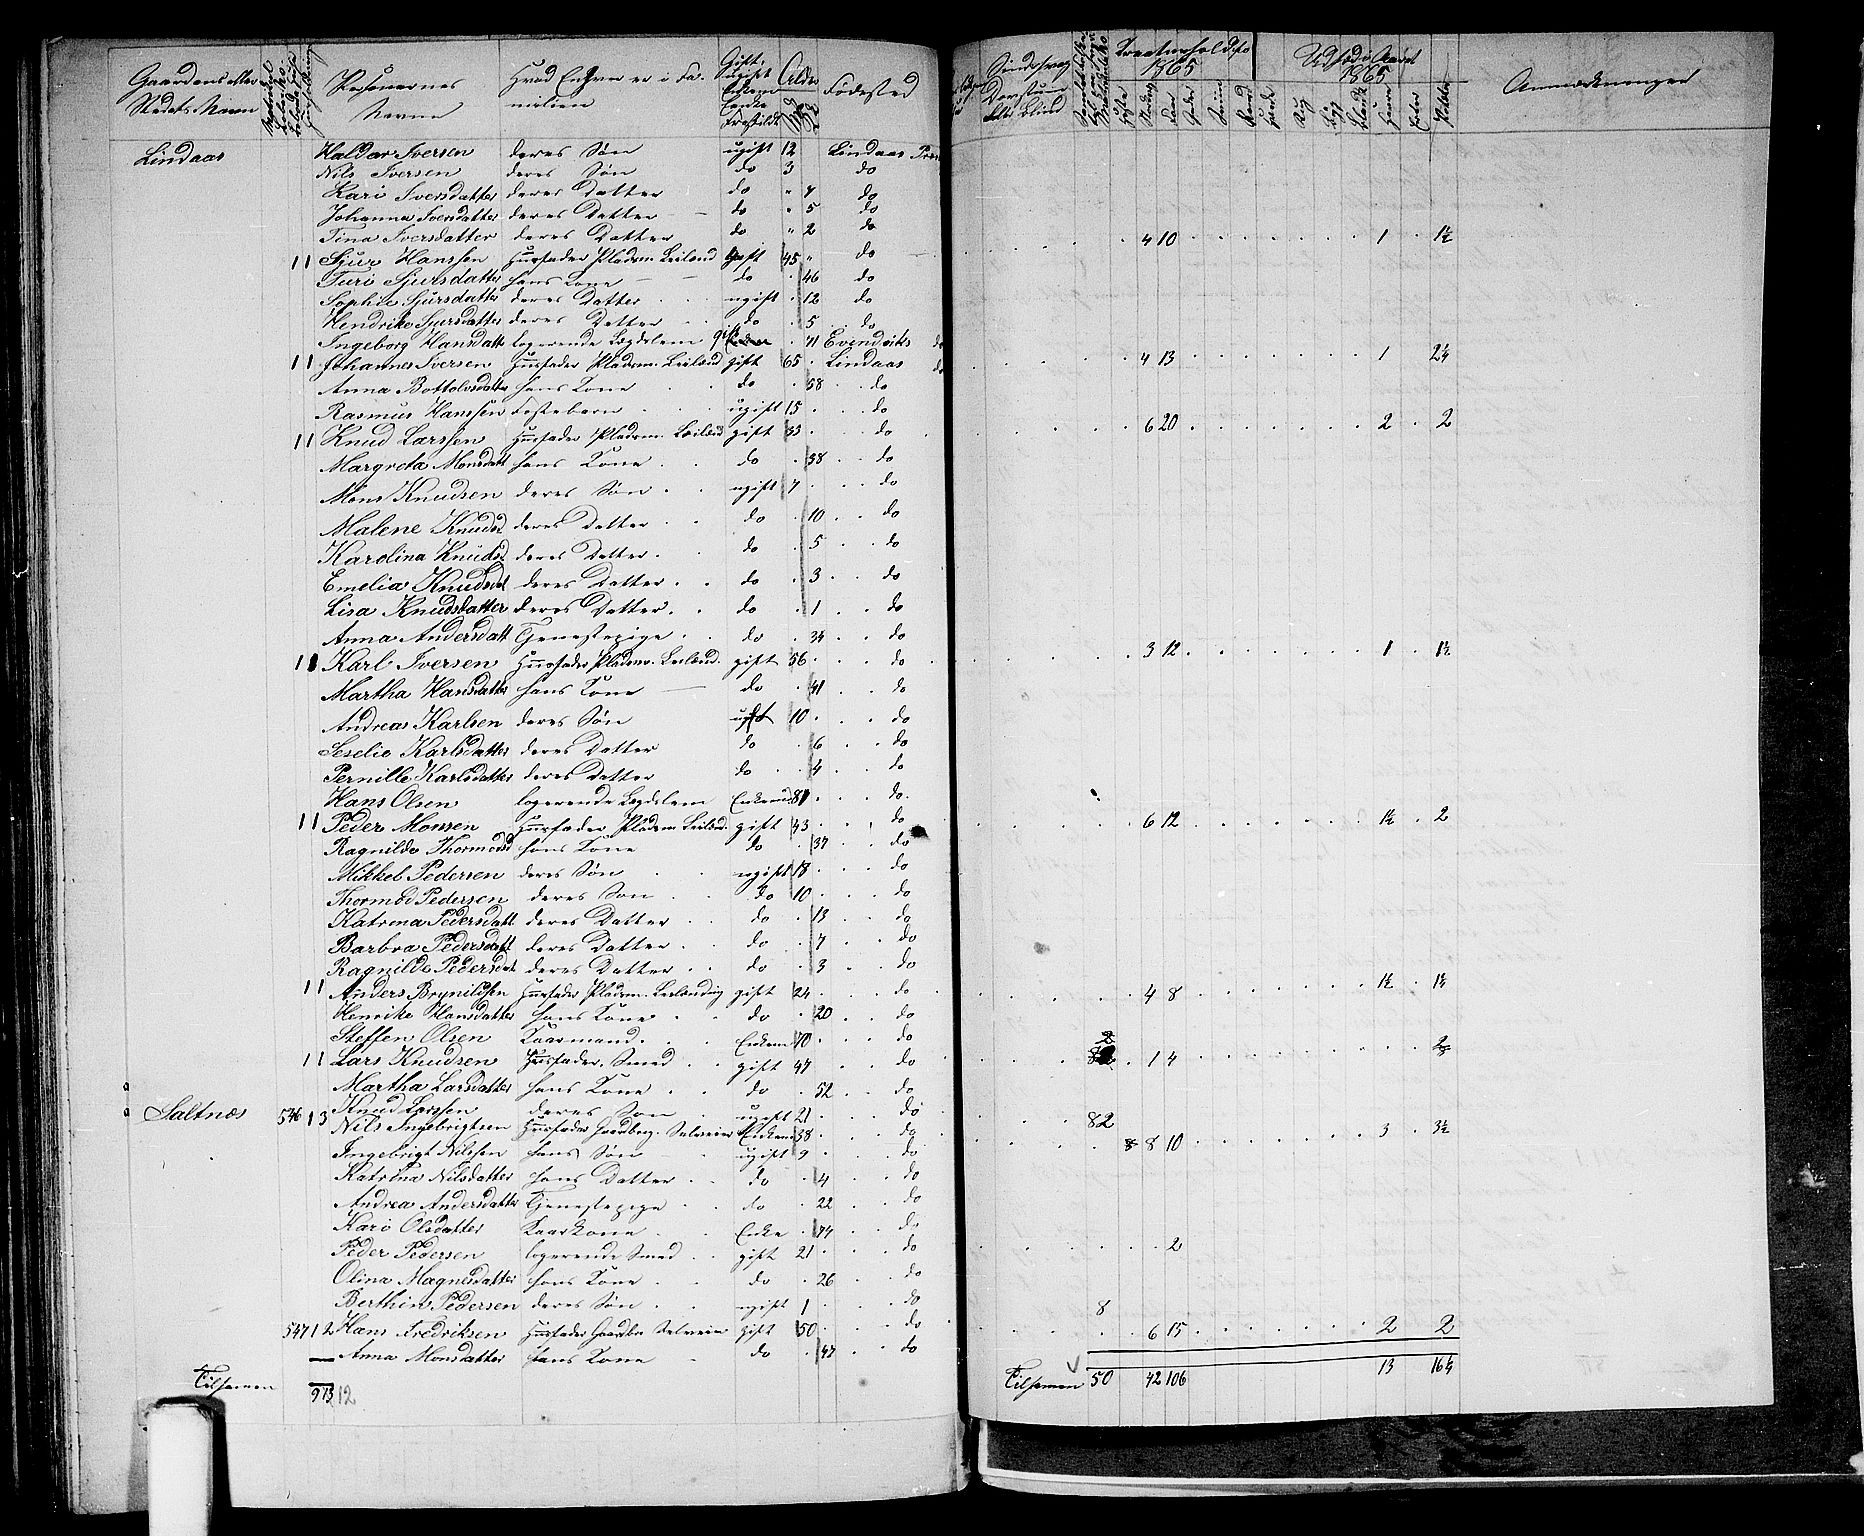 Gaardens eller Stedets Navn
Personernes Navne
Hvad Enhver er i Familien
Alder
Fødested
Kreaturhold 1865
Udsæd i Aaret 1865
Anmærkninger
Lindaas Haldor Iversen deres Søn ugift 12 Lindaas
Nils Iversen deres Søn do 3 do
Kari Iversdatter deres Datter do " 7 do
Johanna Iversdatter deres Datter do " 5 do
Tina Iversdatter deres Datter do " 2 do
11 Sjur Hanssen Husfader Pladsm. Leilænd gift 45 " do 4 10 1 1½
Turi Sjursdatter hans Kone do 46 do
Sophie Sjursdatter deres Datter ugift 12 do
Hendrike Sjursdatter deres Datter do 5 do
Ingeborg Hansdatt logerende Lægdslem 71 Evindviks do
11 Johannes Iversen Husfader Pladsm. Leilænd gift 65 Lindaas do 4 13 1 2¼
Anna Bottolvsdatter hans Kone do 58 do
Rasmus Hanssen Fostebarn ugift 15 do
11 Knud Larssen Husfader Pladsm. Leilænd gift 33 do 6 20 2 2
Margreta Monsdatt hans Kone do 38 do
Mons Knudsen deres Søn ugift 7 do
Malene Knudsd deres Datter do 10 do
Karolina Knudsd deres Datter do 5 do
Emelia Knudsdt deres Datter do 3 do
Lisa Knudsdatter deres Datter do 1 do
Anna Andersdatt Tjenestepige do 34 do
11 Karl Iversen Husfader Pladsm. Leilænd. gift 56 do 3 12 1 1½
Martha Hansdatter hans Kone do 41 do
Andreas Karlsen deres Søn ugift 10 do
Seselie Karlsdatter deres Datter do 6 do
Pernille Karlsdatter deres Datter do 4 do
Hans Olsen logerende Lægdslem Enkem 81 do
11 Peder Monsen Husfader Pladsm Leilænd. gift 43 do 6 12 1½ 2
Ragnilde Thormodsd hans Kone do 37 do
Mikkel Pedersen deres Søn ugift 18 do
Thormod Pedersen deres Søn do 10 do
Katrina Pedersdatt deres Datter do 13 do
Barbra Pedersdatt deres Datter do 7 do
Ragnilde Pedersdat deres Datter do 3 do
11 Anders Brynildsen Husfader Pladsm. Leilænding gift 24 do 4 8 1½ 1½
Henrike Hansdatter hans Kone do 20 do
Steffen Olsen Kaarmand Enkem 70 do
11 Lars Knudsen Husfader. Smed gift 47 do 1 4
Martha Larsdatter hans Kone do 52 do
Knud Larssen deres Søn ugift 21 do
Saltnes 546 13 Nils Ingebrigtsen Husfader Gaardbrg. Selveier Enkem 38 do 82 8 10 3 3½
Ingebrigt Nilssen hans Søn ugift 9 do
Katrina Nilsdatter hans Datter do 4 do
Andrea Andersdatter Tjenestepige do 22 do
Kari Olsdatter Kaarkone Enke 74 do
Peder Pedersen logerende Smed gift 21 do 2
Olina Magnesdatter hans Kone do 26 do
Berthin Pedersen deres Søn ugift 1 do
547 12 Hans Fredriksen Husfader Gaardbr Selveier gift 50 do 8 6 15 2 2
Anna Monsdatter hans Kone do 47 do
Tilsamen 9 13 12
Tilsamen 50 42 106 13 16¼